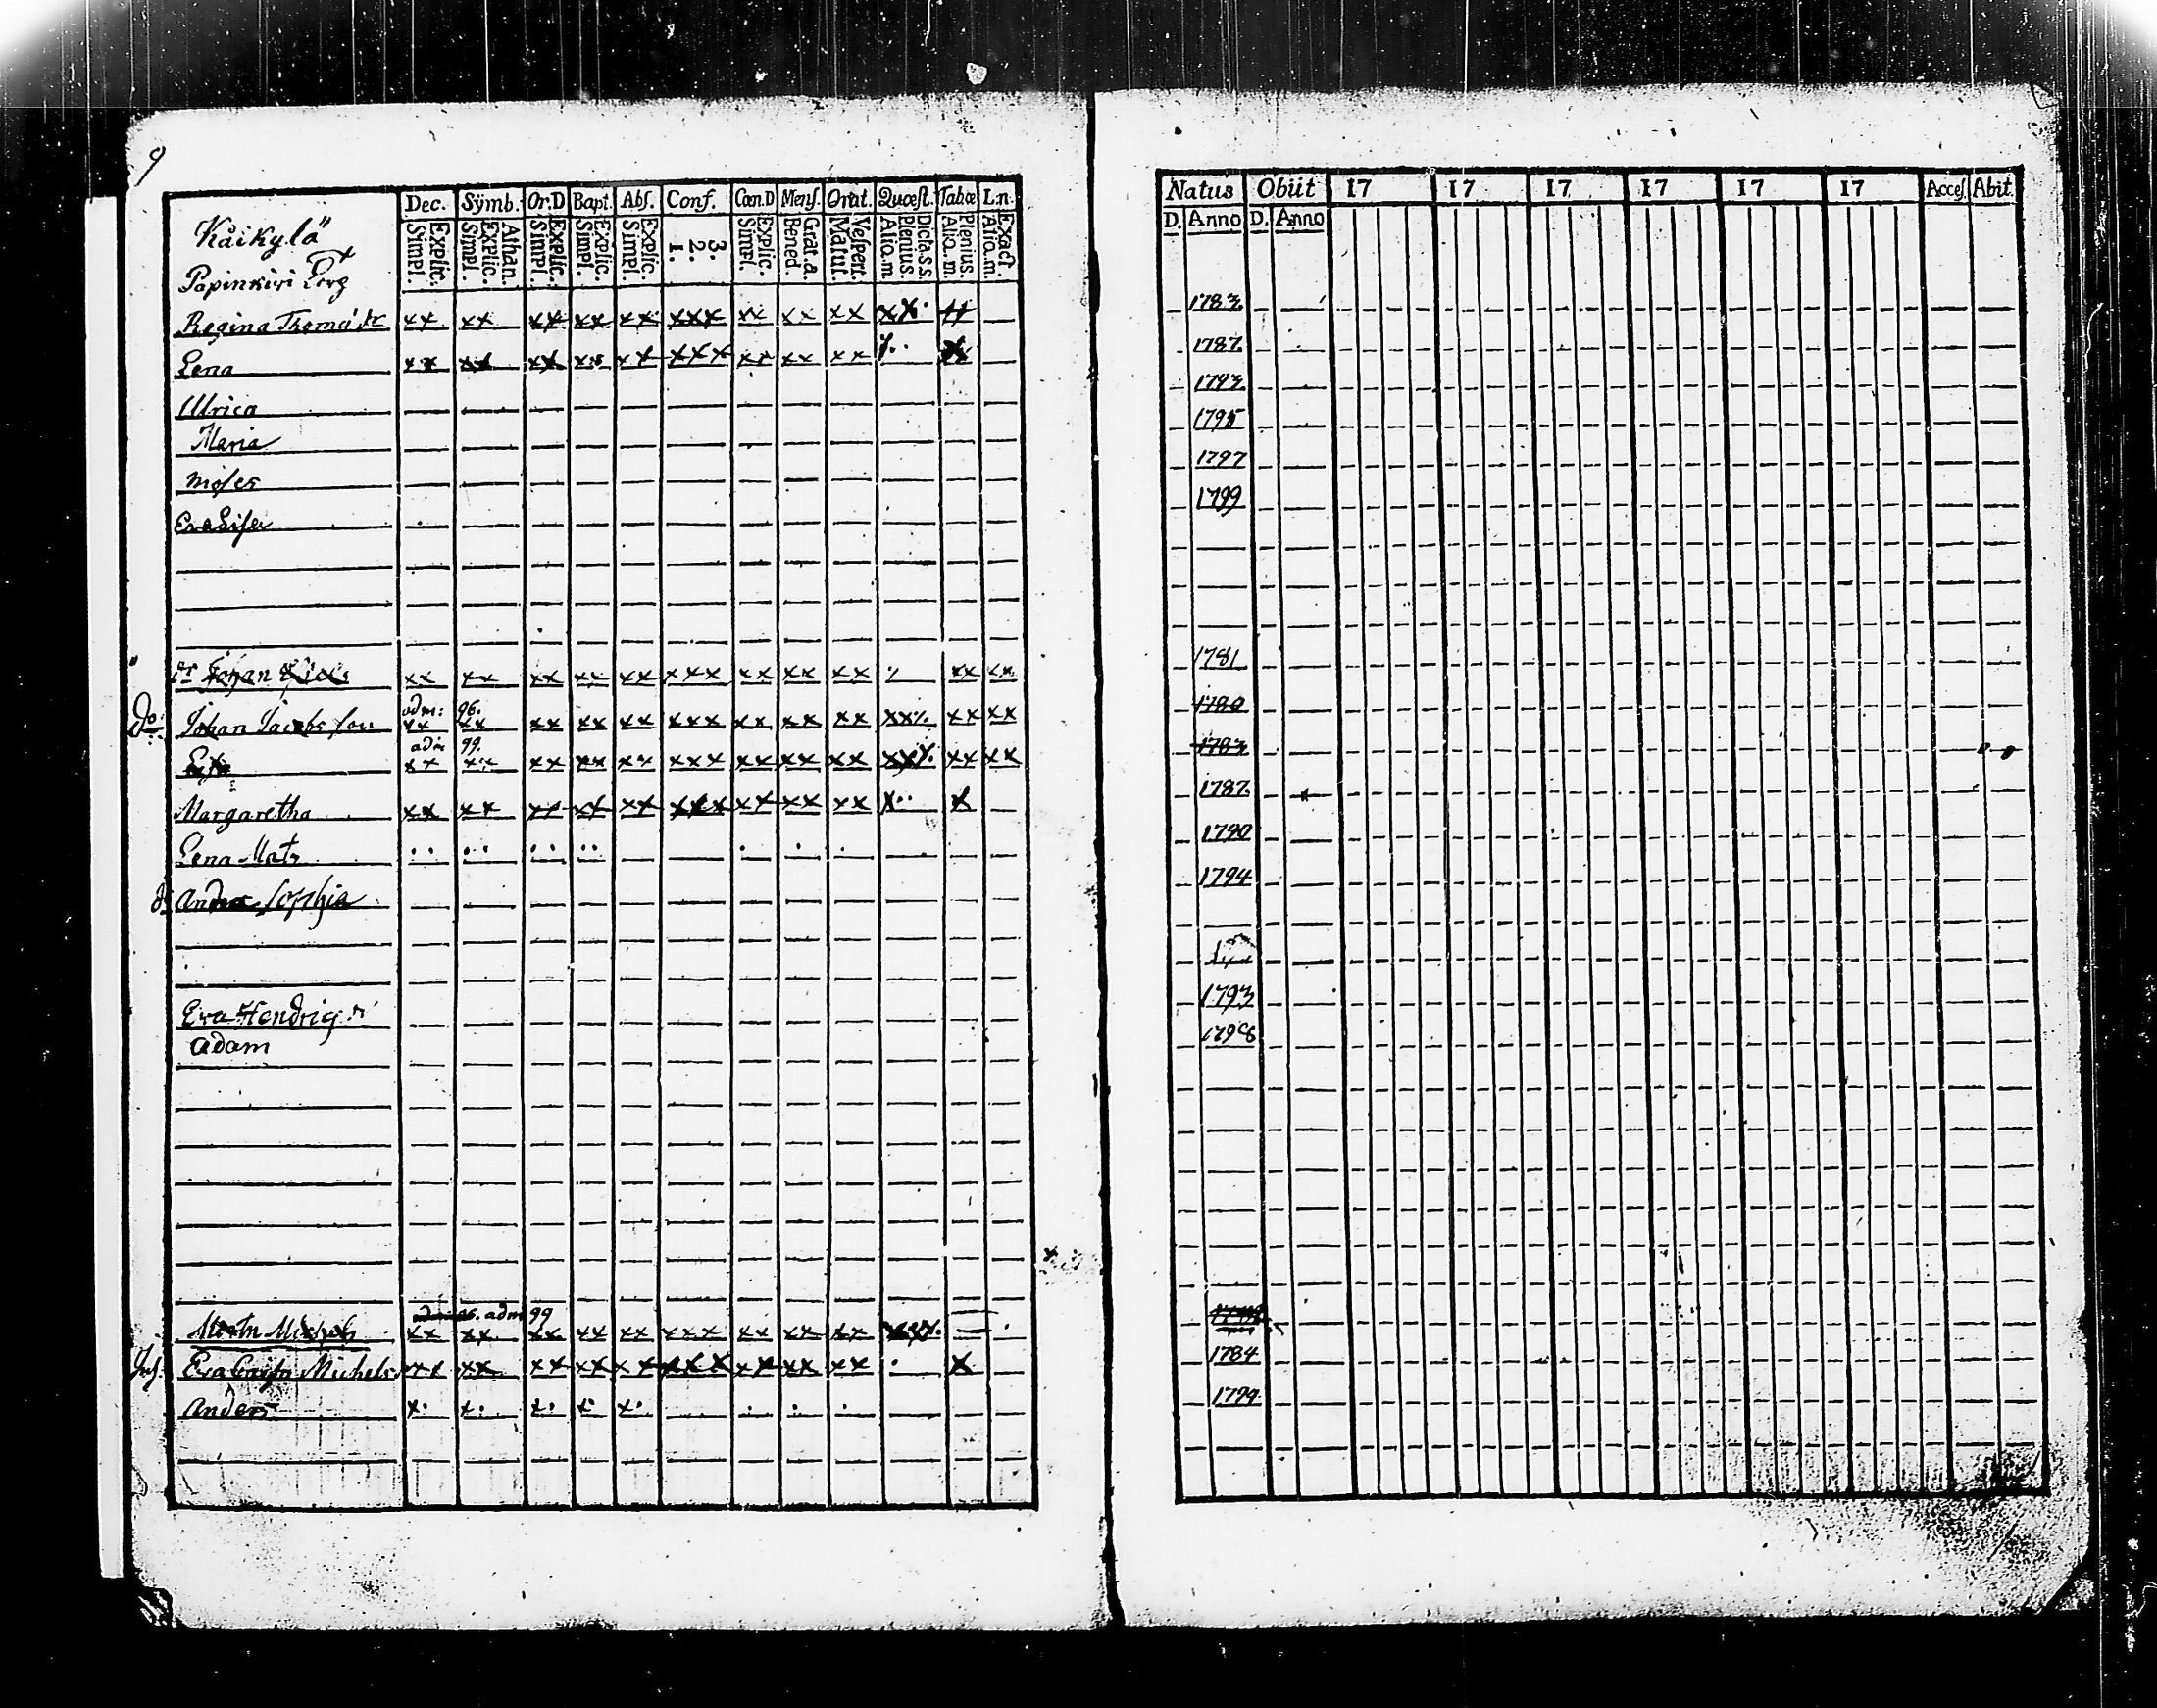 9
Dec. Sÿmb. Or.D Bapt. Abſ. Conf. Cœn.D Menſ. Orat. Quæſt. Tabæ L.n.
Explic. Simpl. Athan. Explic. Simpl. Explic. Simpl. Explic. Simpl. Explic. Simpl. 3. 2. 1. Explic. Simpl. Grat.a. Bened. Veſpert. Matut. Dicta.s.s. Plenius. Aliq.m Plenius. Aliq.m. Exact. Aliq.m.
Natus Obiit 17 17 17 17 17 17 Acceſ. Abit.
D. Anno D. Anno
Kåikylä
Papinkiri
Regina Thoma xx xx xx xx xx xxx xx xx xx 1783
Lena xx xx xx xx xx xxx xx xx xx 1787
Ulrica 1793
Maria 1795
Moſes 1797
Eva Liſa 1799
Johan xx xx xx xx xx xxx xx xx xx xx xx 1781
adm: 96.
Do: Johan Jacobs ſon xx xx xx xx xx xxx xx xx xx xx xx 1780
adm 99.
xx xx xx xx xx xxx xx xx xx xx xx 1783
Margaretha xx xx xx xx xx xxx xx xx xx x.. x 1787
Lena Mats 1790
Anna Sophia 1794
Eva Hendrig 1793
Adam 1798
adm 99
Michels xx xx xx xx xx xxx xx xx xx
Eva Michels xx xx xx xx xx xxx xx xx xx x 1784
Anders x. x. x. x. x. 1794